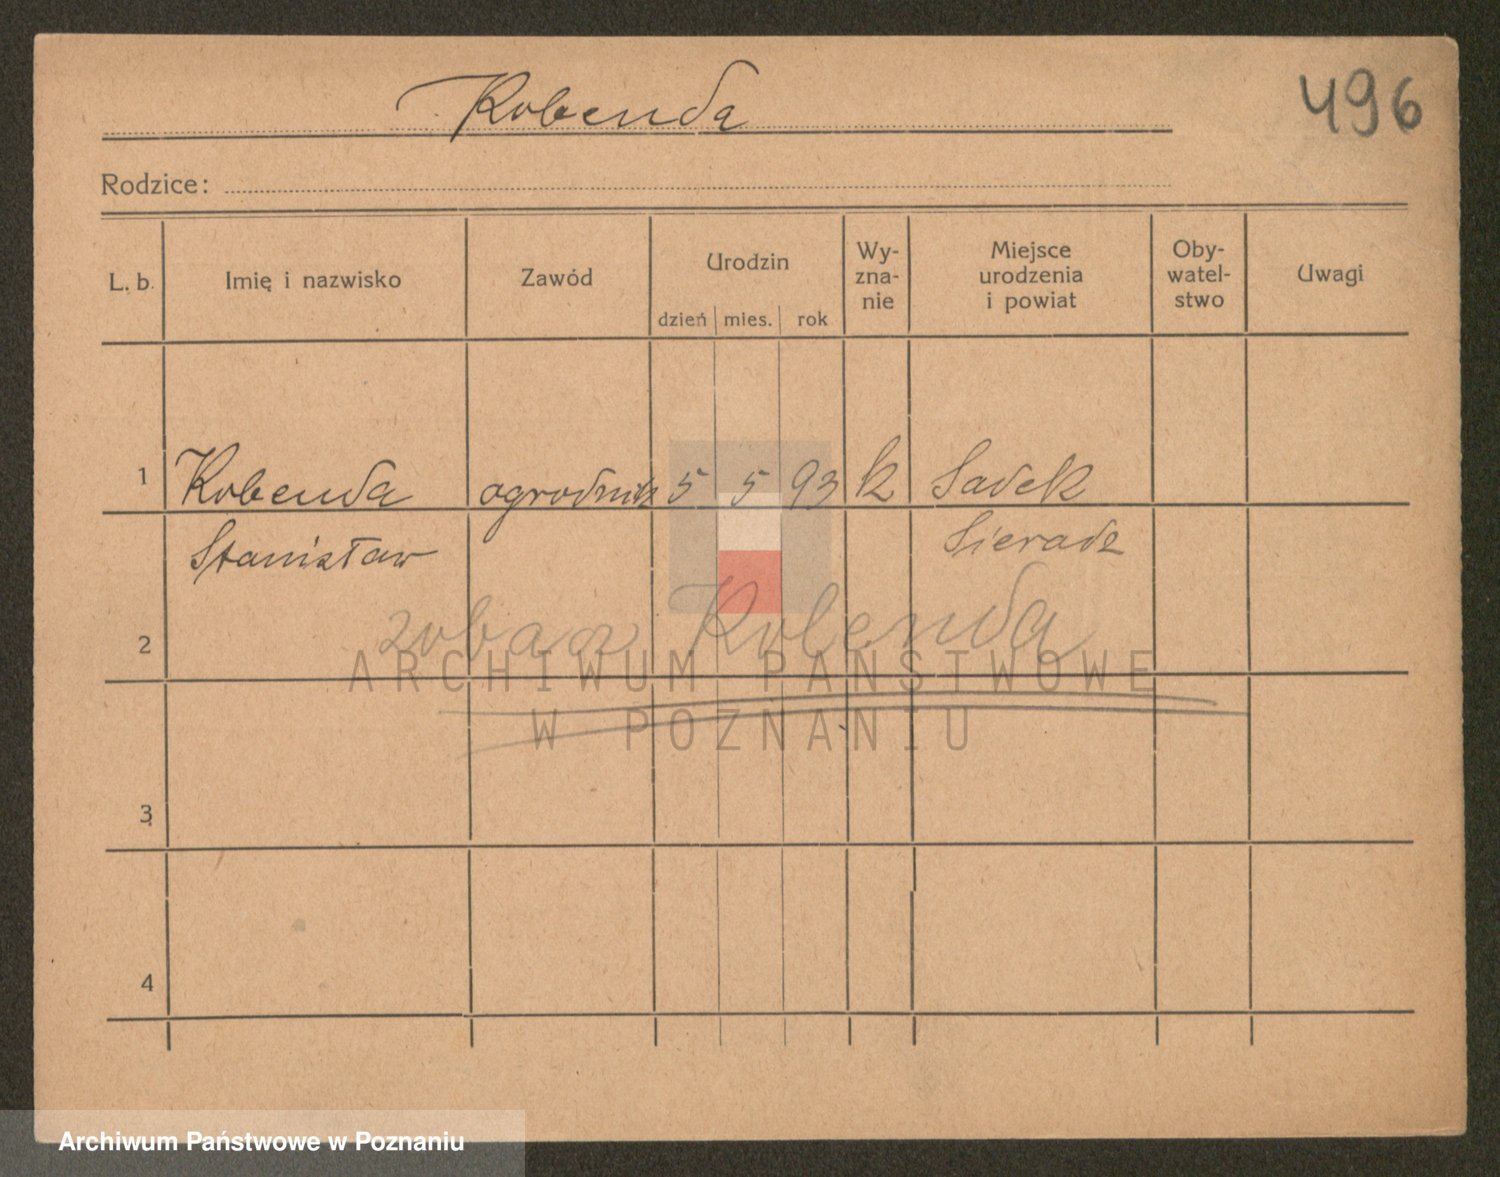 Kobenda
496
Rodzice:
L. b. Imię i nazwisko Zawód Urodzin dzień mies. rok Wy-zna-nie Miejsce urodzenia i powiat Oby-watel-stwo Uwagi
1 Kobenda ogrodnik 5 5 93 k Sadek
Stanisław Sieradz
2 zobacz Kolenda
ARCHIWUM PAŃSTWOWE
W POZNANIU
3
4
Archiwum Państwowe w Poznaniu